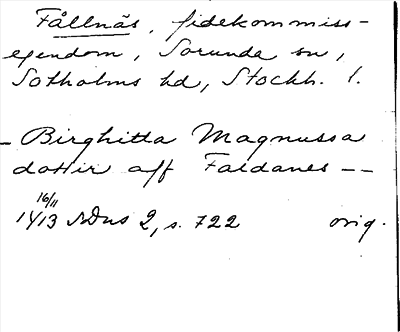 Fållnäs, fidekommiss-
egendom, Sorunda sn,
Sotholms hd, Stockh. l.
- Birghitta Magnussa
dottir aff Faldanes --
16/11
1413 SDns 2, s. 722 orig.